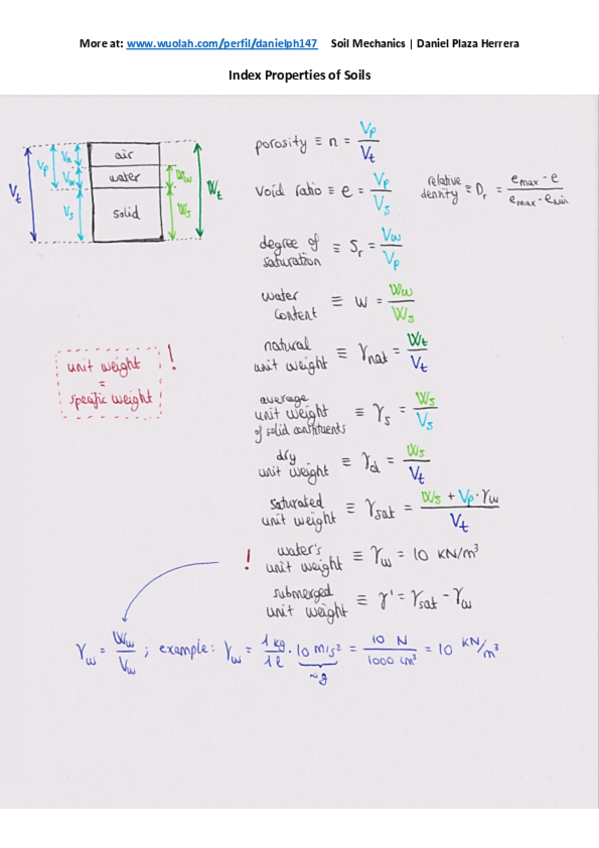 More at: www.wuolah.com/perfil/danielph147 Soil Mechanics | Daniel Plaza Herrera
Index Properties of Soils
air
water
solid
Vt
Vp
Va
Vw
Vs
Ww
Ws
Wt
porosity ≡ n = Vp / Vt
void ratio ≡ e = Vp / Vs
relative density ≡ Dr = emax - e / emax - emin
degree of saturation ≡ Sr = Vw / Vp
water content ≡ w = Ww / Ws
natural unit weight ≡ γnat = Wt / Vt
unit weight = specific weight !
average unit weight of solid constituents ≡ γs = Ws / Vs
dry unit weight ≡ γd = Ws / Vt
saturated unit weight ≡ γsat = Ws + Vp · γw / Vt
! water's unit weight ≡ γw = 10 KN/m³
submerged unit weight ≡ γ' = γsat - γw
γw = Ww / Vw ; example: γw = 1 kg / 1 l · 10 m/s² = 10 N / 1000 cm³ = 10 KN/m³
~g